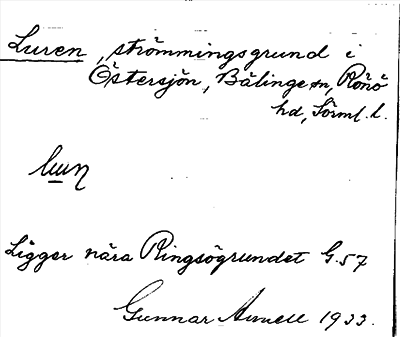 Luren, strömmingsgrund i
Östersjön, Bälinge sn, Rönö
hd, Sörml. l.
Ligger nära Ringsögrundet G.57
Gunnar 1933.